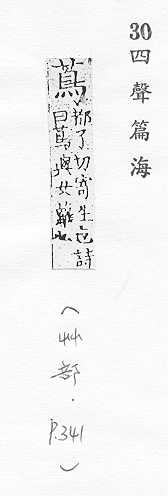 30四聲篇海
蔦
都了切寄生也詩
曰蔦與女蘿
(艸部・P.341)